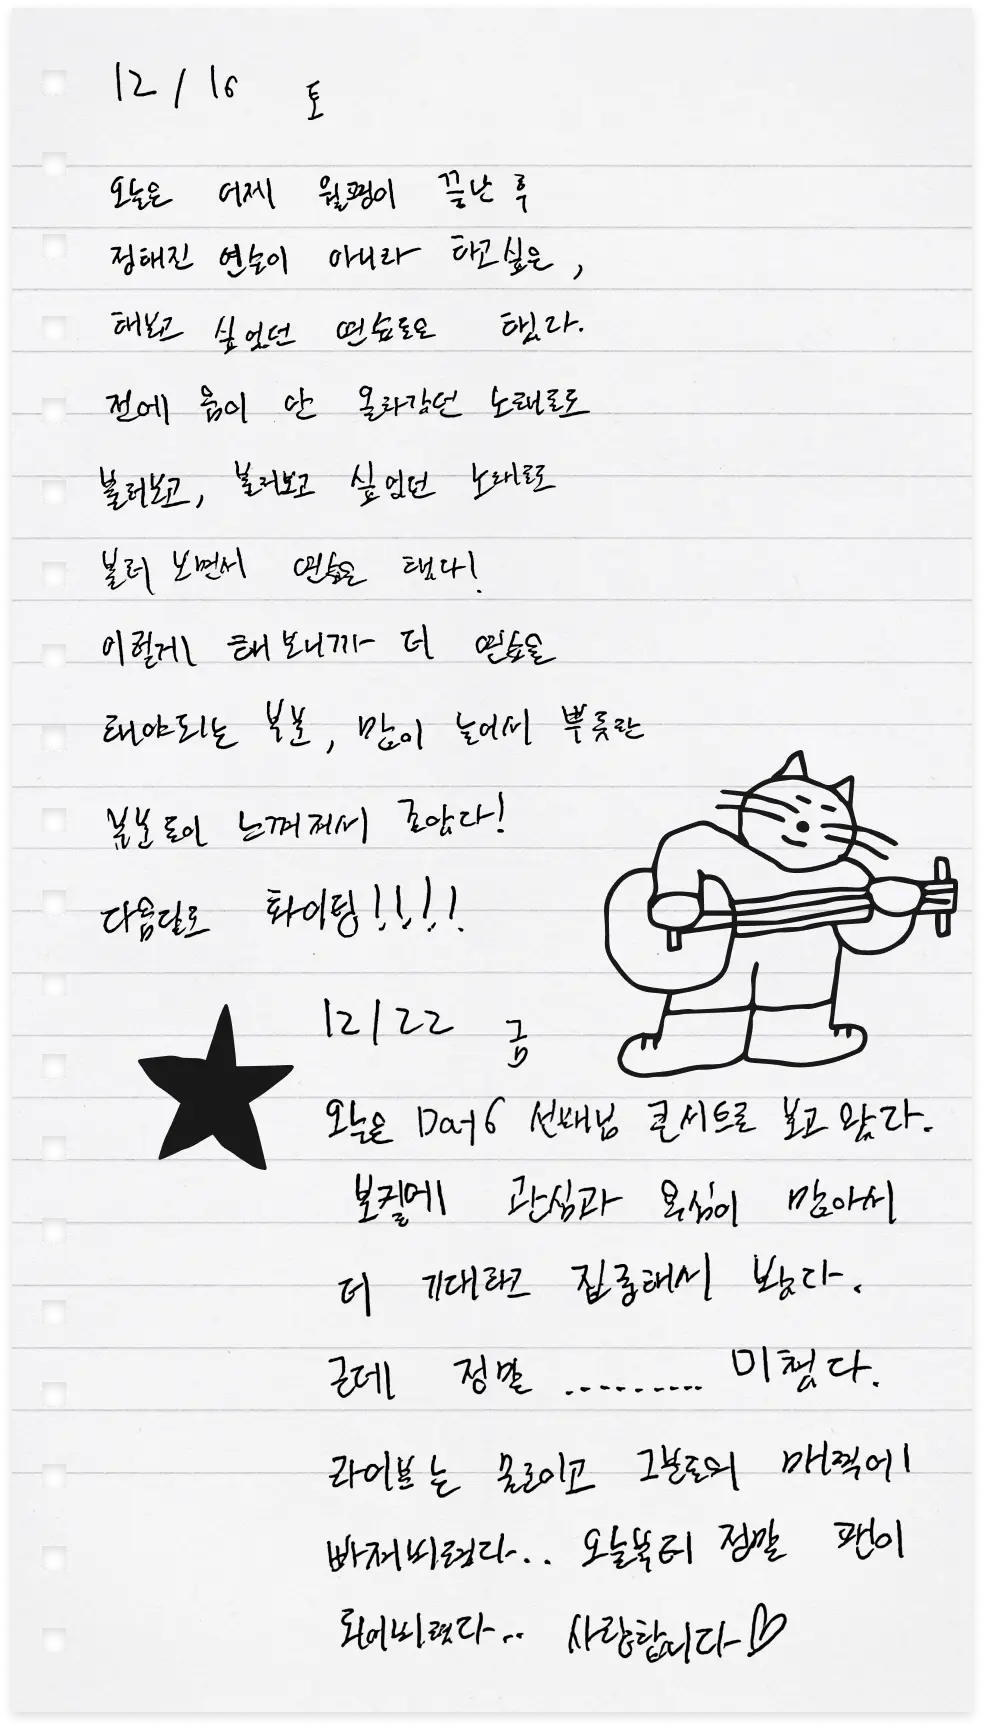 12/16 토
오늘은 어제 월평이 끝난 후
정해진 연습이 아니라 하고싶은,
해보고 싶었던 연습들로 했다.
전에 음이 안 올라갔던 노래들도
불러보고, 불러보고 싶었던 노래들로
불러 보면서 연습을 했다!
이렇게 해보니까 더 연습을
해야되는 부분, 많이 늘어서 뿌듯한
부분들이 느껴져서 조았다!
다음달도 화이팅!!!!
12/22 금
오늘은 Day6 선배님 콘서트를 보고 왔다.
보컬에 관심과 욕심이 많아서
더 기대하고 집중해서 봤다.
근데 정말 .......... 미쳤다.
라이브는 물론이고 그분들의 매력에
빠져버렸다.. 오늘부터 정말 팬이
되어버렸다.. 사랑합니다♡